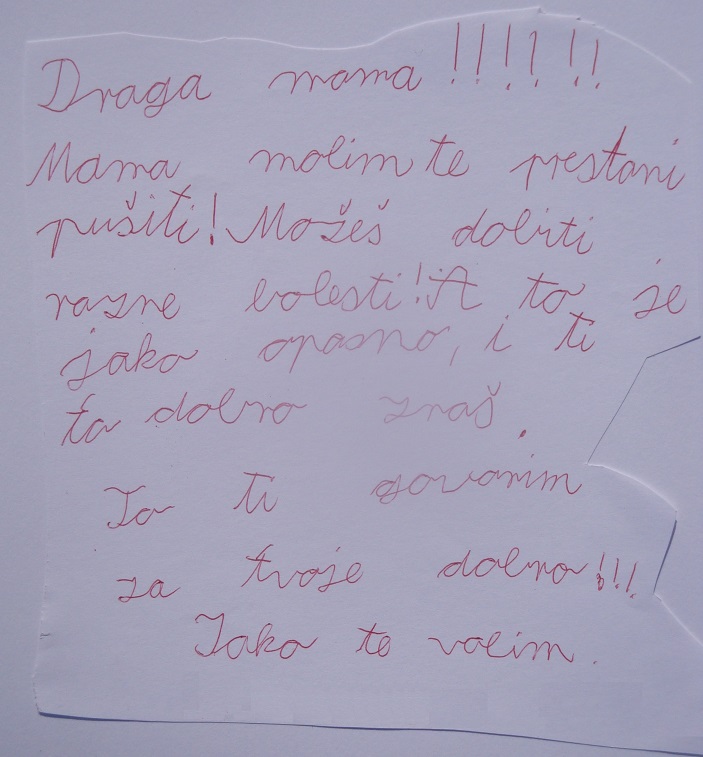 Draga mama !!!!!!
Mama molim te prestani
pušiti! Možeš dobiti
razne bolesti! A to je
jako opasno, i ti
to dobro znaš.
To ti govorim
za tvoje dobro!!!
Jako te volim.